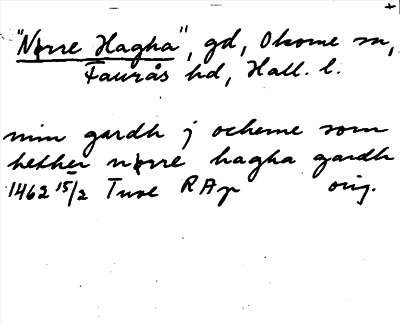 "Nørre Hagha", gd, Okome sn,
Faurås hd, Hall. l.
min gardh j ocheme som
hether nørre hagha gardh
1462 15/2 Tuve RAp orig.